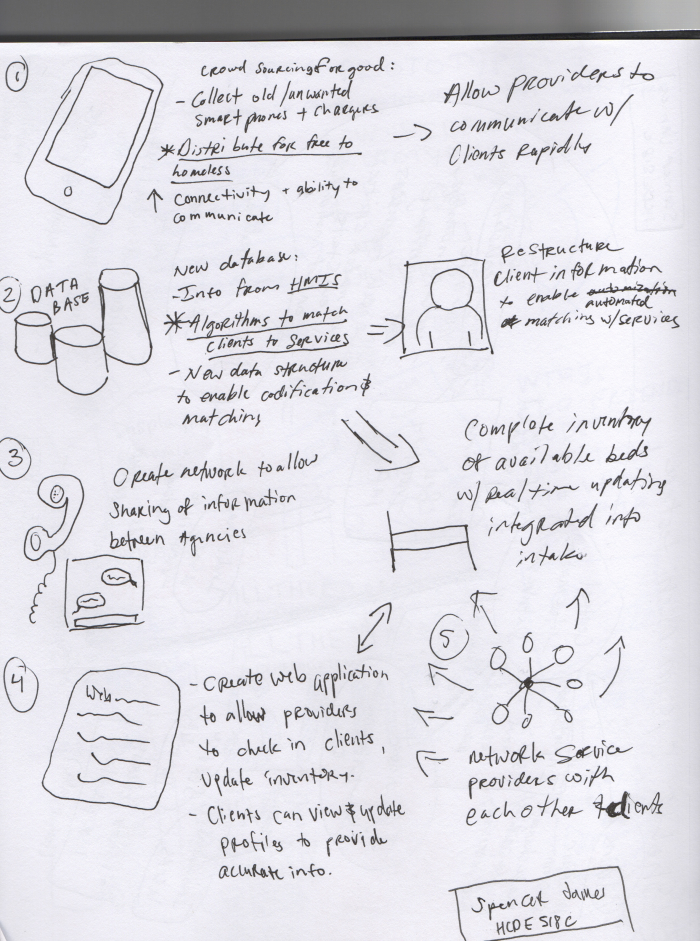 1
Crowd Sourcing for good:
- Collect old/unwanted
Smart phones + Chargers
* Distribute for free to
homeless
↑ Connectivity + ability to
communicate
→ Allow Providers to
communicate w/
Clients Rapidly
2
DATA
BASE
New database:
- Info from HMIS
* - Algorithms to match
Clients to Services
- New data structure
to enable codification &
matching
Restructure
Client information
to enable
automated
matching w/services
3
Create network to allow
Sharing of information
between Agencies
Complete inventory
of available beds
w/ Real time updating
integrated into
intake
4
Web
- Create web application
to allow providers
to check in clients,
update inventory.
- Clients can view & update
profiles to provide
accurate info.
5
network Service
providers with
each other & clients
Spencer James
HCDE 518C